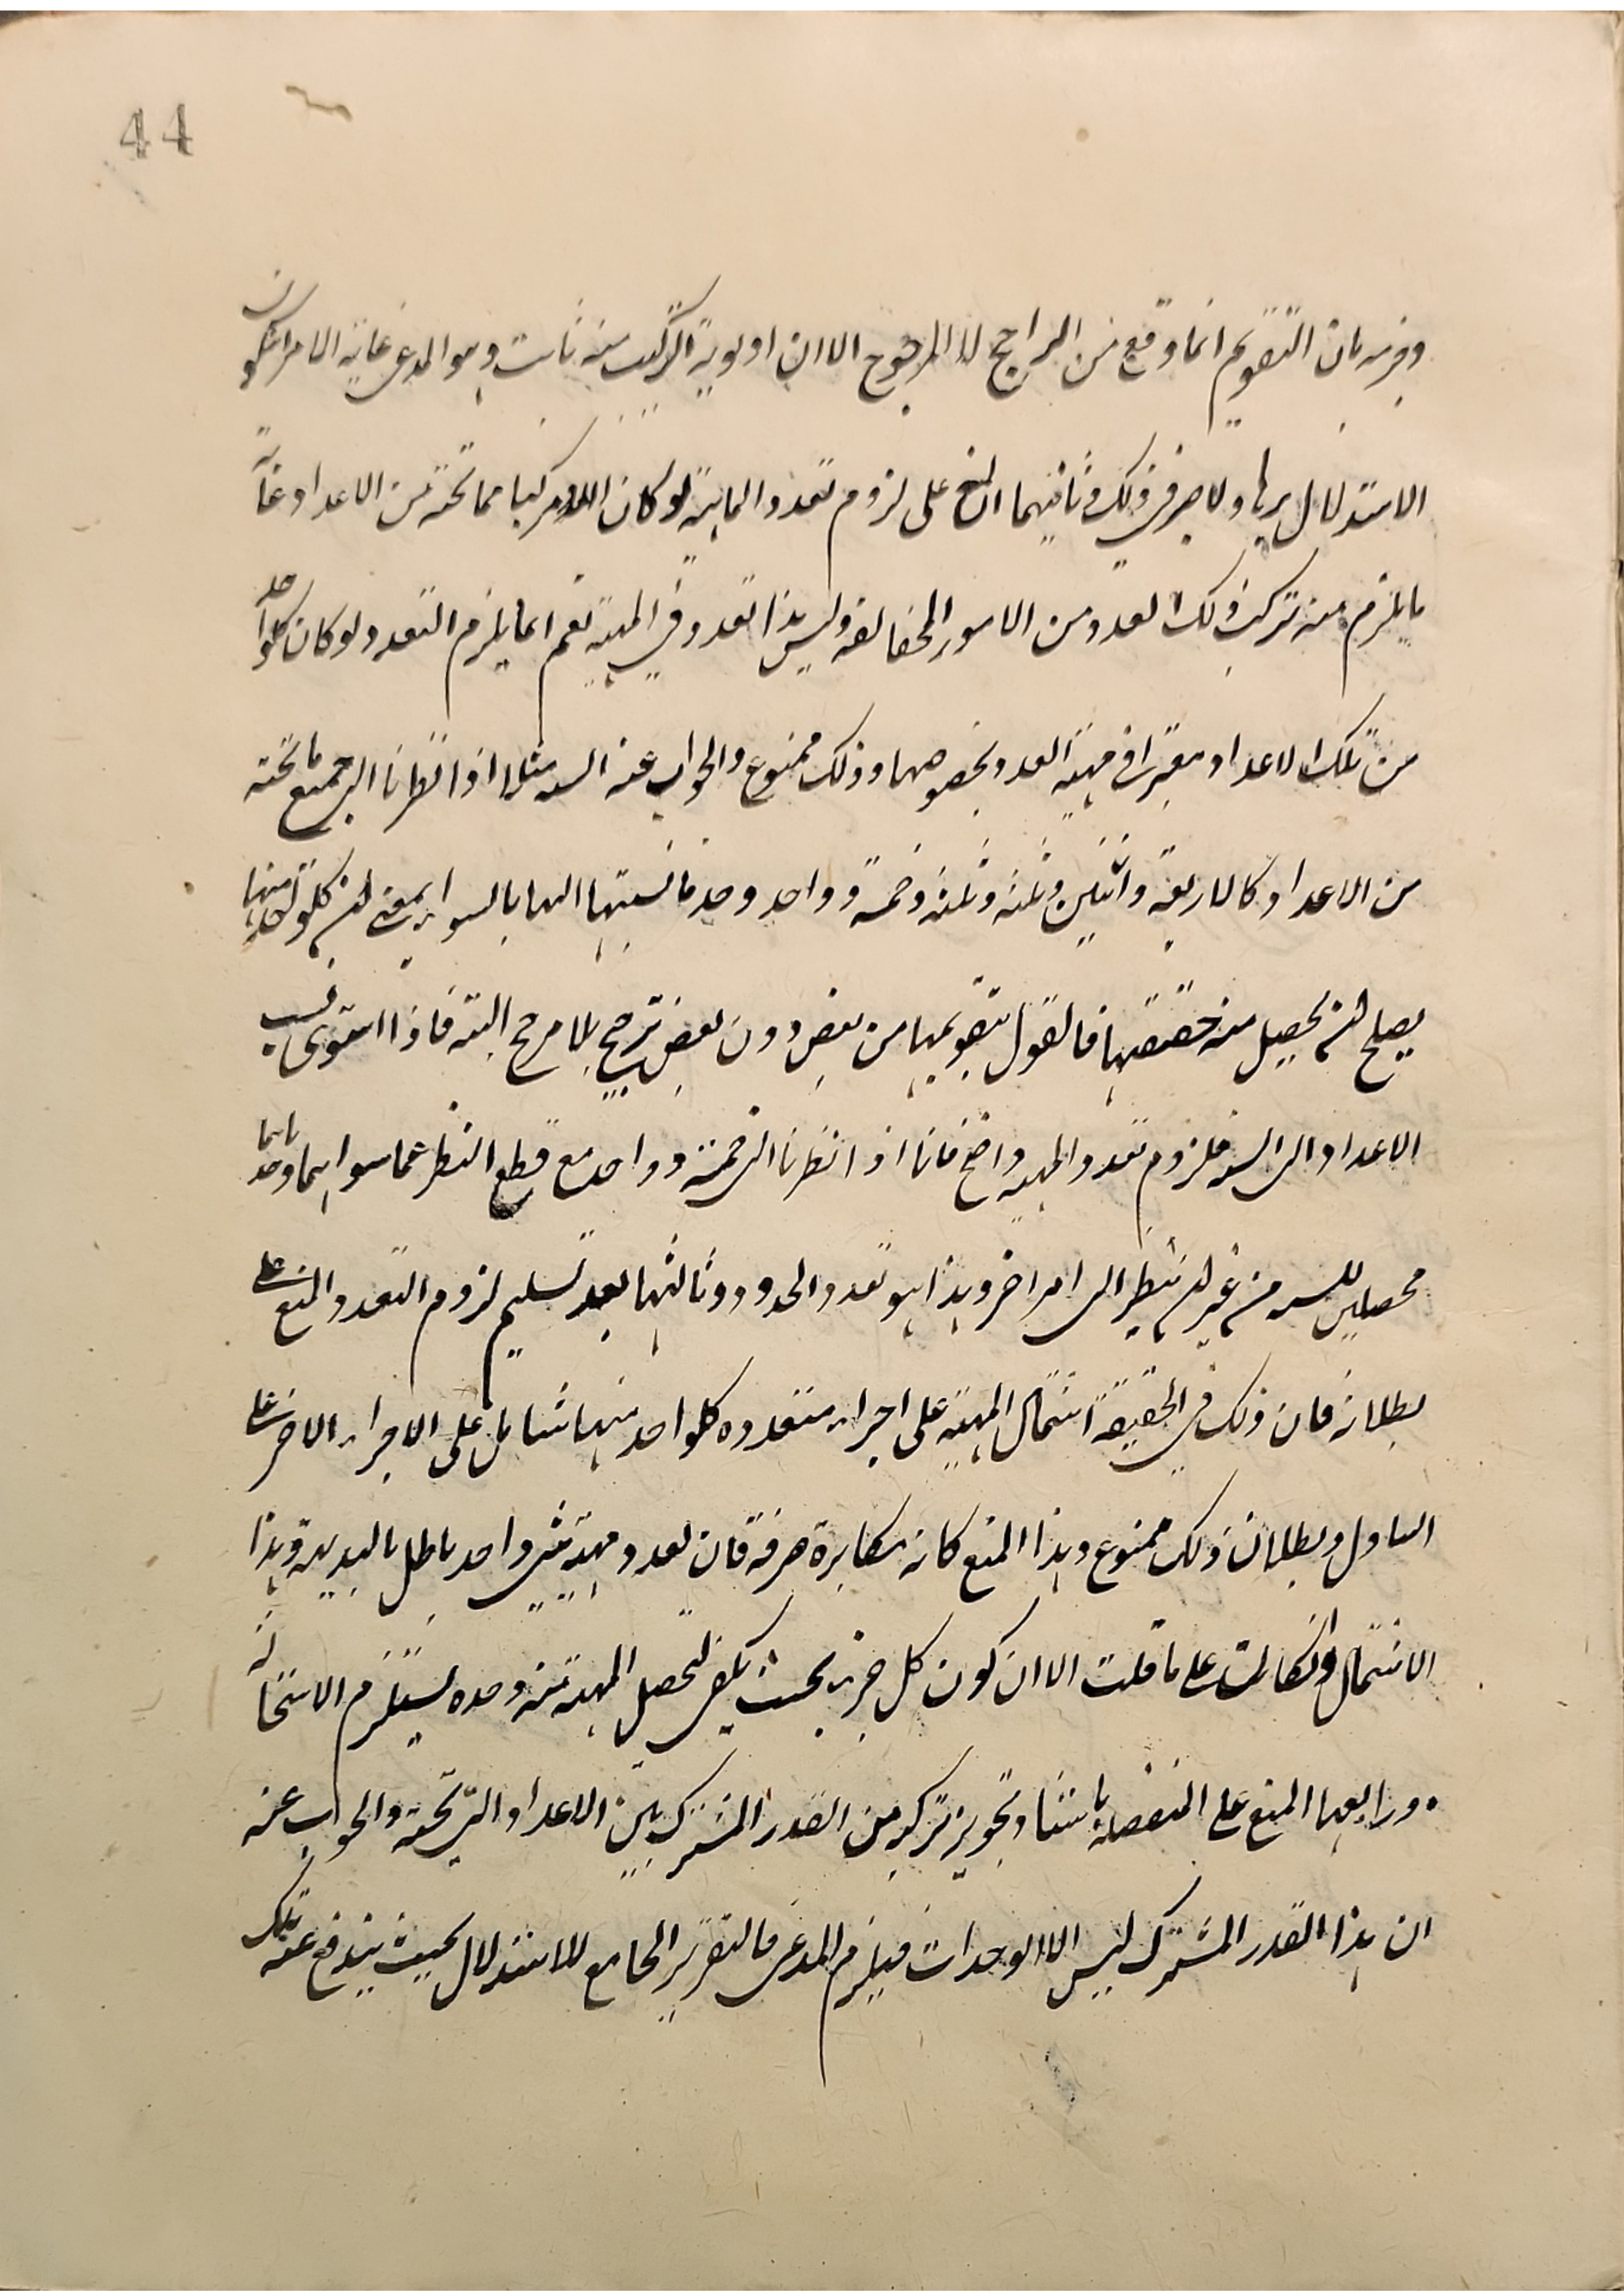 44
وفيه بان التقويم انما وقع من الراجح لا المرجوح الا ان اولوية التركيب منه ثابت وهو المدعى غاية الامر ان يكون
الاستدلال بها ولا ضير في ذلك وثانيهما المنع على لزوم تعدد الماهية لو كان العدد مركبا مما تحته من الاعداد وغاية
ما يلزم منه تركب ذلك العدد من الامور المخالفة وليس هذا تعدد في المهية نعم انما يلزم التعدد لو كان كلواحد
من تلك الاعداد معتبرا في مهية العدد بخصوصها وذلك ممنوع والجواب عنه الستة مثلا اذا نظرنا الى جميع ما تحته
من الاعداد كالاربعة واثنين وثلثة وثلثة وخمسة وواحد وجدنا نسبتها اليها بالسواء بمعنى ان كلواحد منها
يصلح ان يحصل منه حقيقتها فالقول بتقويمها من بعض دون بعض ترجيح بلا مرجح البتة فاذا استوى نسب
الاعداد الى الستة فلزوم تعدد المهية واضح فانا اذا نظرنا الى خمسة وواحد مع قطع النظر عما سواهما وجدناهما
محصلين للستة من غير ان ينظر الى امر اخر وهذا هو تعدد الحدود وثالثها بعد تسليم لزوم التعدد والمنع على
بطلانه فان ذلك في الحقيقة اشتمال المهية على اجزاء متعددة كلواحد منها شامل على الاجزاء الاخر على
التناول وبطلان ذلك ممنوع وهذا المنع كانه مكابرة صرفة فان تعدد مهية شئ واحد باطل بالبديهة وهذا
الاشتمال وان كانت على ما قلت الا ان كون كل جزء بحيث يكفى لتحصل المهية منه وحده يستلزم الاستحالة
ورابعها المنع على المنفصلة باستناد تجويز تركبه من القدر المشترك بين الاعداد التى تحته والجواب عنه
ان هذا القدر المشترك ليس الا الوحدات فيلزم المدعى فالتقرير الجامع للاستدلال بحيث يندفع عنه تلك